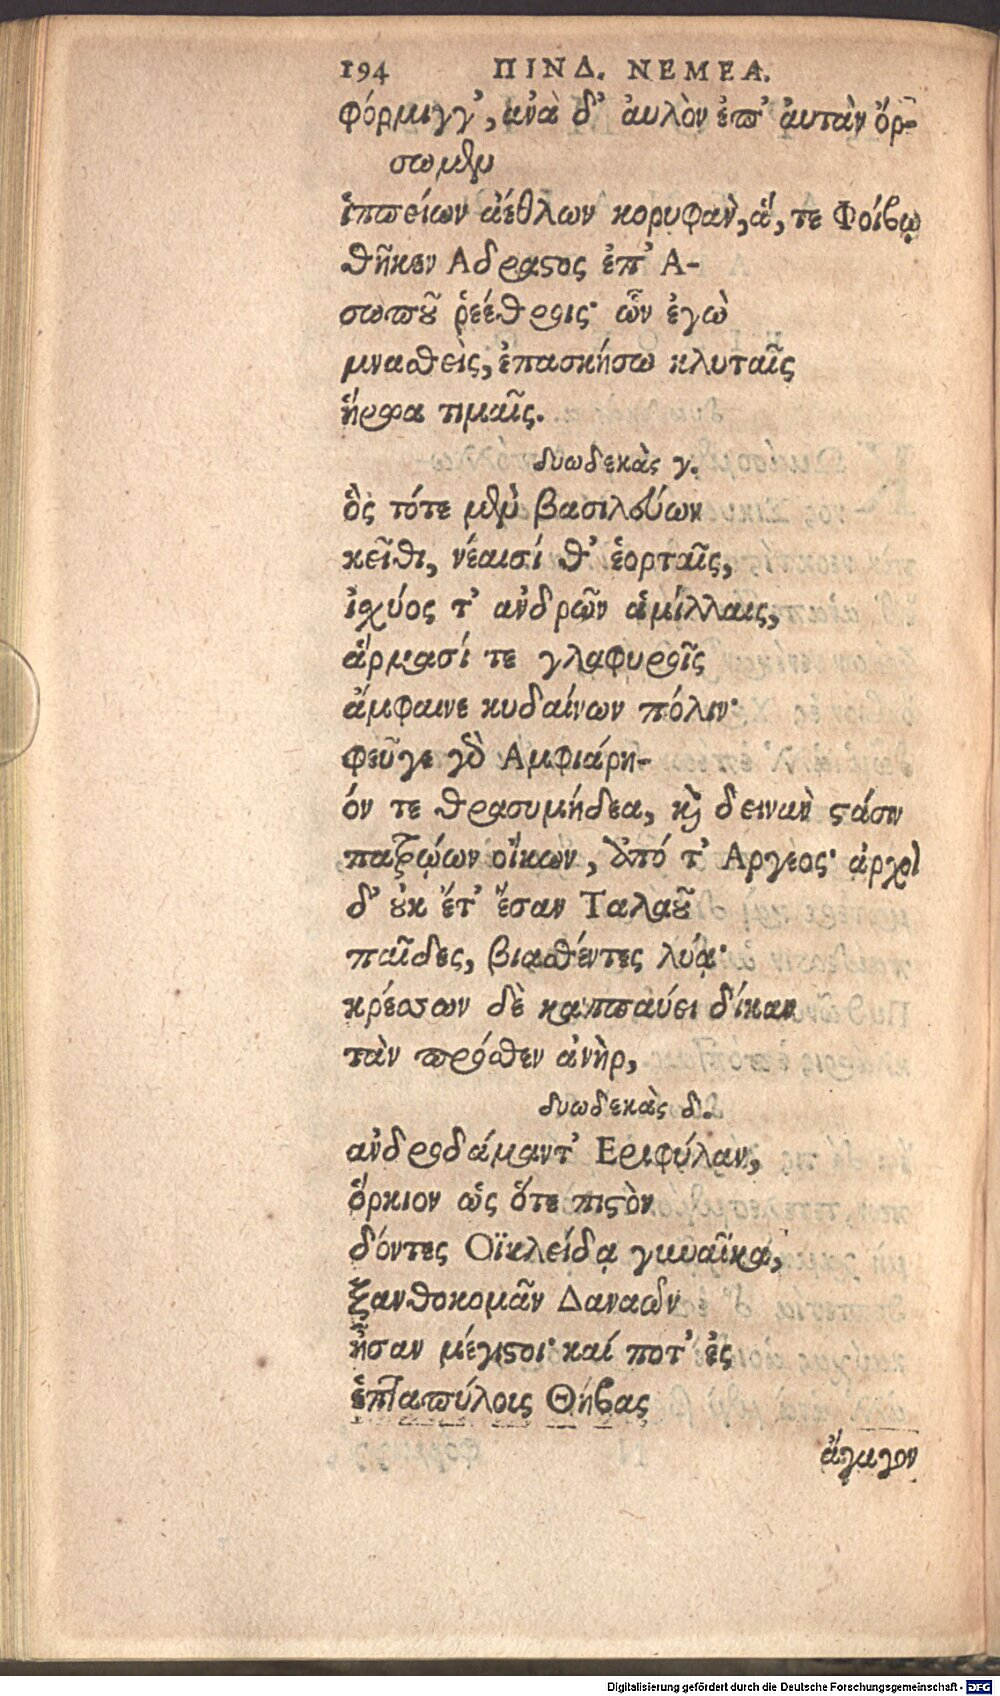 194 ΠΙΝΔ. ΝΕΜΕΑ.
φόρμιγγ', ἀνὰ δ' ἀυλὸν ἐπ' ἀυτὰν ὄρ-
σωμεν
ἱππείων ἀέθλων κορυφὰν, ἅ, τε Φοίβῳ
θῆκεν Αδραςος ἐπ' Α-
σωποῦ ῥεέθροις· ὧν ἐγὼ
μναθεὶς, ἐπασκήσω κλυταῖς
ἥρωα τιμαῖς.
δυωδεκὰς γ.
ὃς τότε μὲν βασιλεύων
κεῖθι, νέαισί θ' ἑορταῖς,
ἰχύος τ' ἀνδρῶν ἁμίλλαις,
ἅρμασί τε γλαφυροῖς
ἄμφαινε κυδαίνων πόλιν·
φεῦγε γὸ Αμφιάρη-
όν τε θρασυμήδεα, κὶ δεινὰν ςάσιν
πατρῴων οἴκων, ἀπό τ' Αργεος· ἀρχοὶ
δ' οὐκ ἔτ' ἔσαν Ταλαοῦ
παῖδες, βιασθέντες λύᾳ·
κρέσσων δὲ καππαύει δίκαν
τὰν πρόσθεν ἀνὴρ,
δυωδεκὰς δ.
ἀνδροδάμαντ' Εριφύλαν,
ὅρκιον ὡς ὅτε πιςὸν
δόντες Οϊκλείδᾳ γυναῖκα,
ξανθοκομᾶν Δαναῶν
ἦσαν μέγιςοι· καί ποτ' ἐς
ἑπταπύλοις Θήβας
ἄγαγον
Digitalisierung gefördert durch die Deutsche Forschungsgemeinschaft - DFG